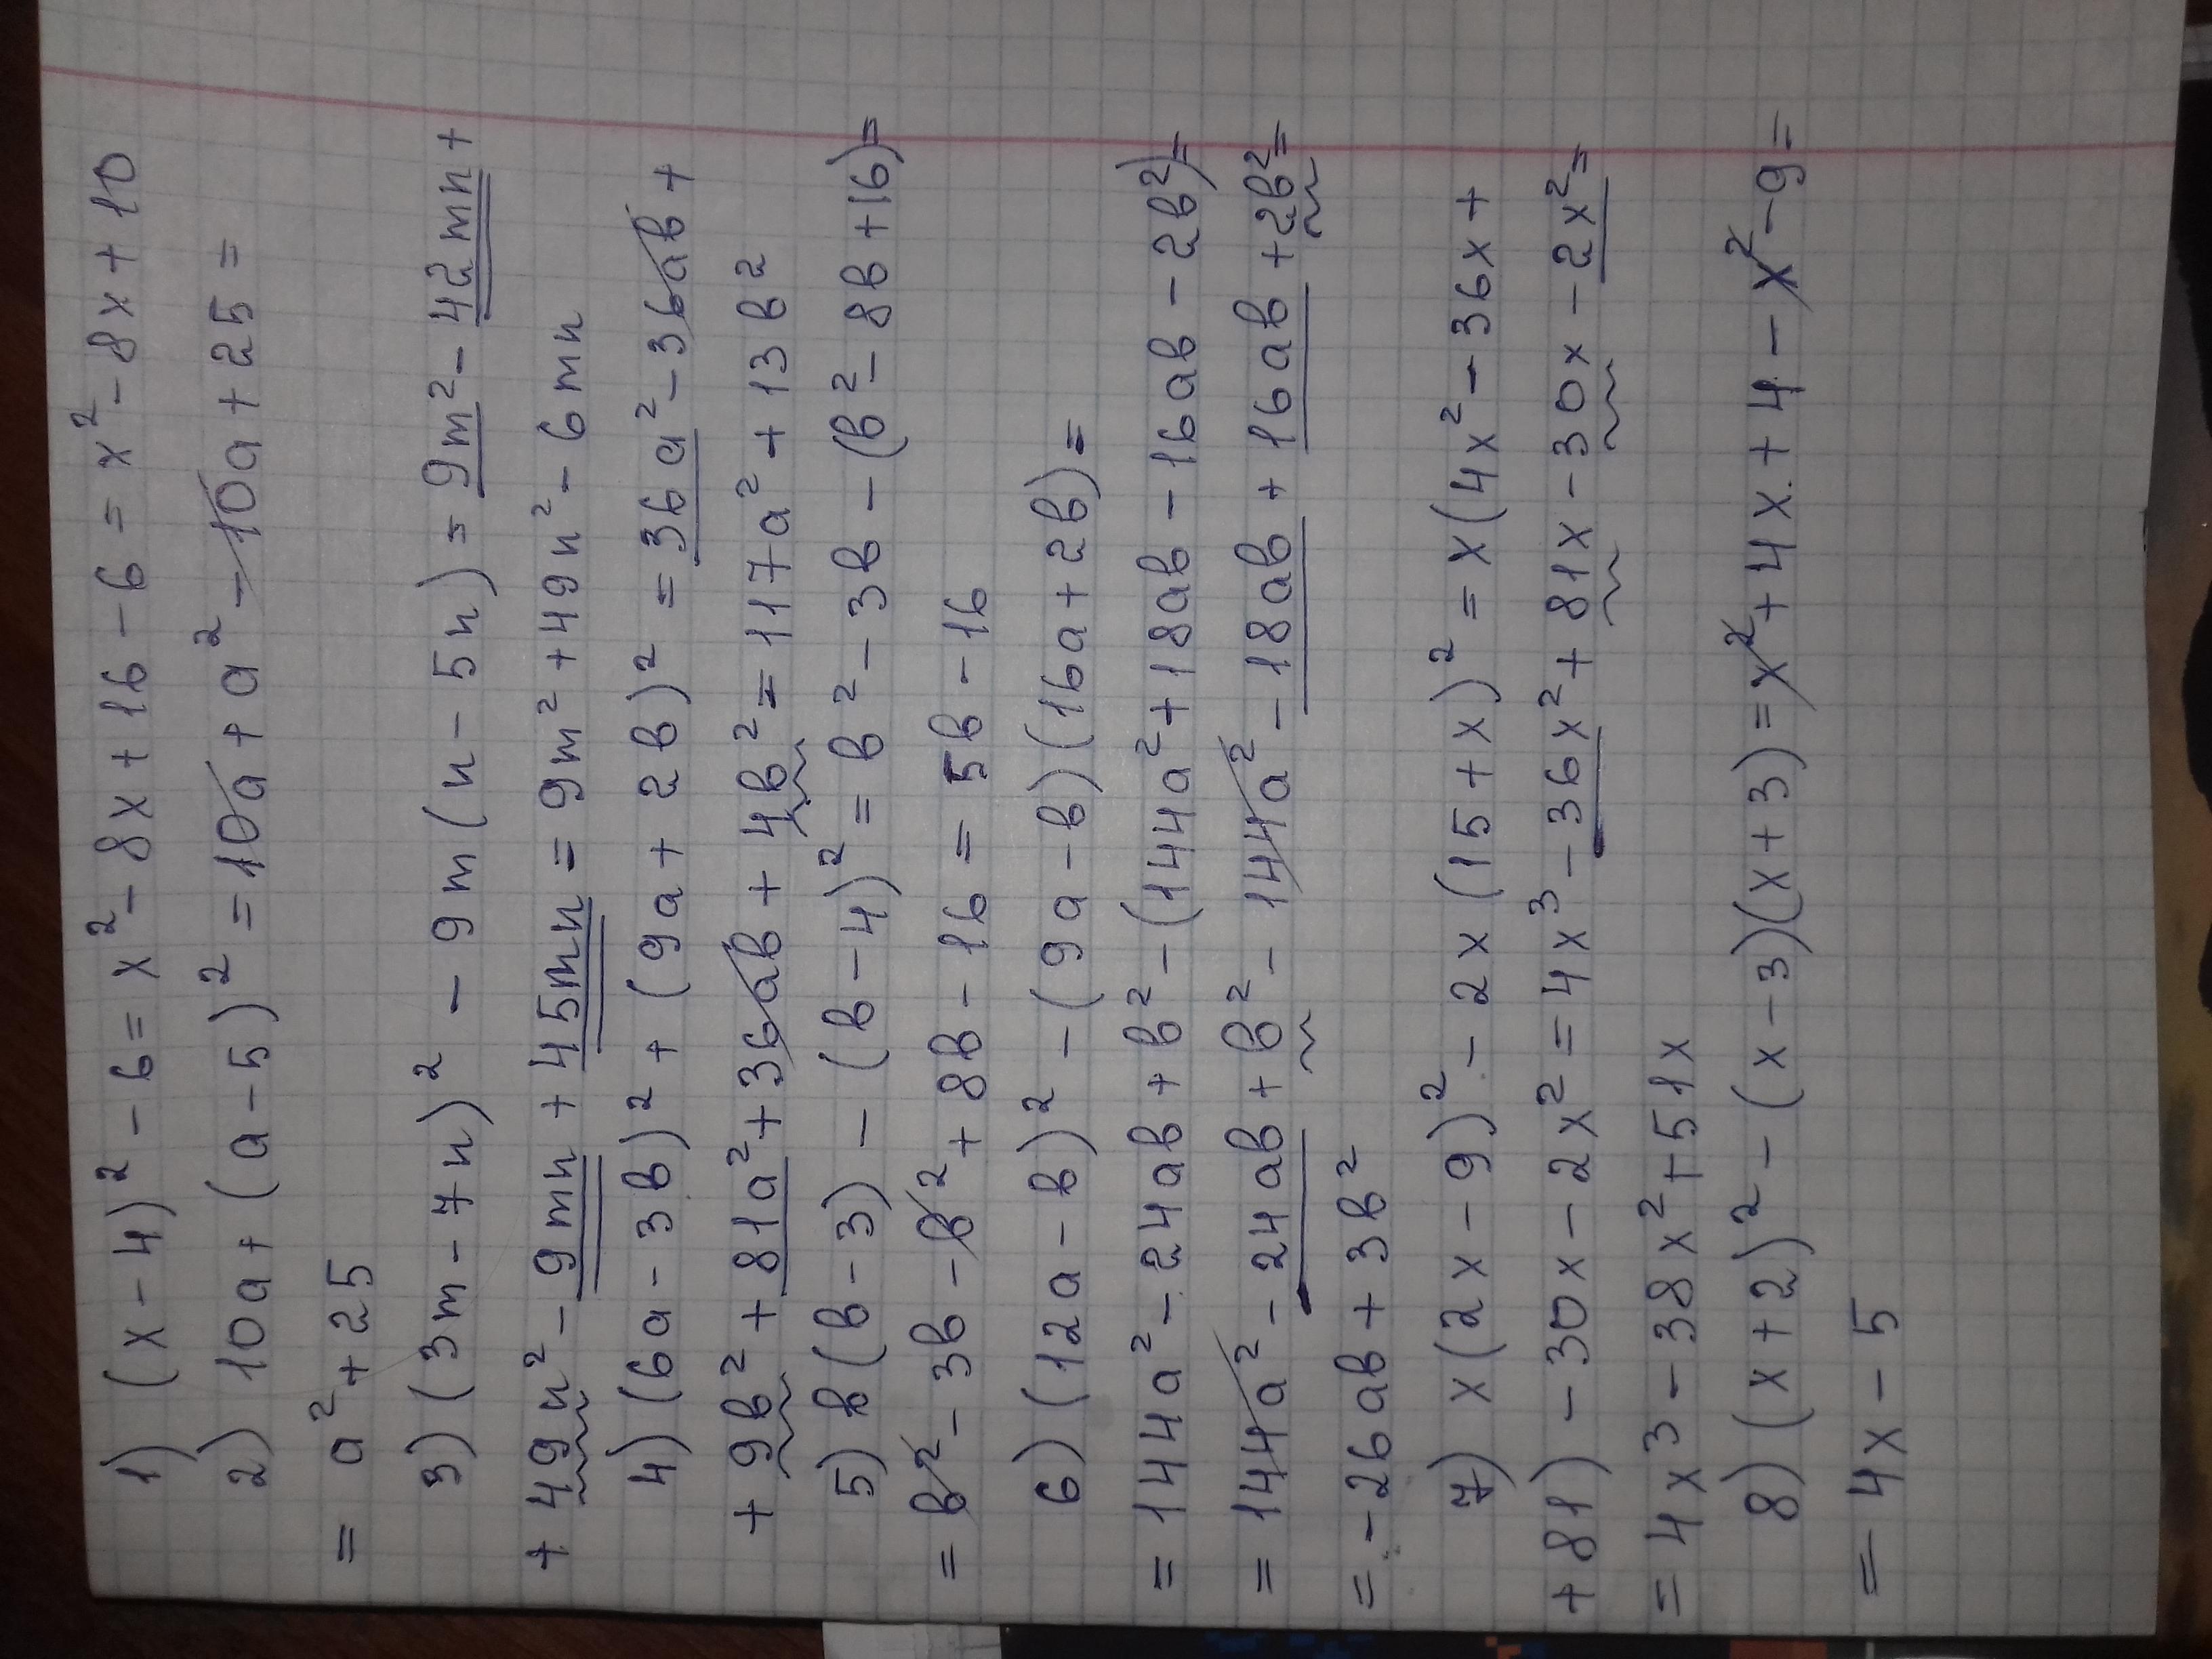 1) (x - 4)² - 6 = x² - 8x + 16 - 6 = x² - 8x + 10
2) 10a + (a - 5)² = 10a + a² - 10a + 25 =
= a² + 25
3) (3m - 7n)² - 9m(n - 5n) = 9m² - 42mn +
+ 49n² - 9mn + 45mn = 9m² + 49n² - 6mn
4) (6a - 3в)² + (9a + 2в)² = 36a² - 36aв +
+ 9в² + 81a² + 36aв + 4в² = 117a² + 13в²
5) в(в - 3) - (в - 4)² = в² - 3в - (в² - 8в + 16) =
= в² - 3в - в² + 8в - 16 = 5в - 16
6) (12a - в)² - (9a - в)(16a + 2в) =
= 144a² - 24aв + в² - (144a² + 18aв - 16aв - 2в²) =
= 144a² - 24aв + в² - 144a² - 18aв + 16aв + 2в² =
= - 26aв + 3в²
7) x(2x - 9)² - 2x(15 + x)² = x(4x² - 36x +
+ 81) - 30x - 2x² = 4x³ - 36x² + 81x - 30x - 2x² =
= 4x³ - 38x² + 51x
8) (x + 2)² - (x - 3)(x + 3) = x² + 4x + 4 - x² - 9 =
= 4x - 5